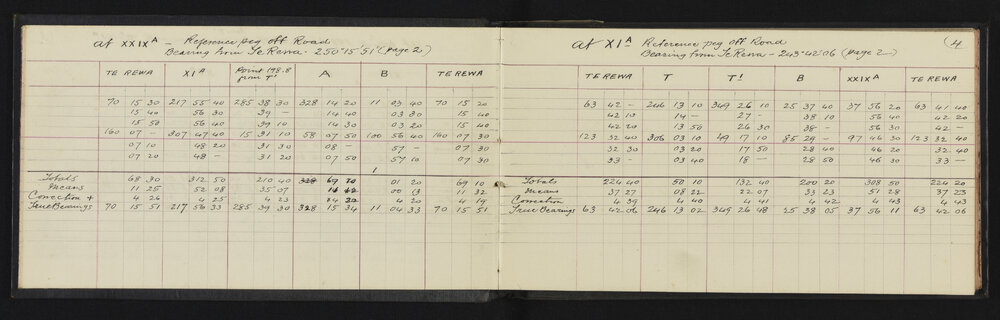 at XXIX A - Reference peg off Road
Bearing from Te Rewa - 250°15'51" (page 2)
TE REWA XI A Point 198.8 from T' A B TE REWA
70 15 30 217 55 40 285 38 30 328 14 20 11 03 40 70 15 20
15 40 56 30 39 — 14 40 03 30 15 40
15 50 56 40 39 10 14 30 03 20 15 40
160 07 — 307 47 40 15 31 10 58 07 50 100 56 40 160 07 30
07 10 48 20 31 30 08 — 57 — 07 30
07 20 48 — 31 20 07 50 57 10 07 30
Totals 68 30 312 50 210 40 67 70 01 20 69 10
Means 11 25 52 08 35 07 00 13 11 32
Correction + 4 26 4 25 4 23 4 20 4 19
True Bearings 70 15 51 217 56 33 285 39 30 328 15 34 11 04 33 70 15 51
at XI A Reference peg off Road 4
Bearing from Te Rewa - 243°42'06 (page 2)
TE REWA T T' B XXIX A TE REWA
63 42 — 246 13 10 349 26 10 25 37 40 37 56 20 63 41 40
42 10 14 — 27 — 38 10 56 40 42 20
42 20 13 50 26 30 38 — 56 30 42 —
123 32 40 306 03 10 49 17 10 85 29 — 97 46 30 123 32 40
32 30 03 20 17 50 28 40 46 20 32 40
33 — 03 40 18 — 28 50 46 30 33 —
Totals 224 40 50 10 132 40 200 20 308 50 224 20
Means 37 27 08 22 22 07 33 23 51 28 37 23
Correction 4 39 4 40 4 41 4 42 4 43 4 43
True Bearings 63 42 06 246 13 02 349 26 48 25 38 05 37 56 11 63 42 06